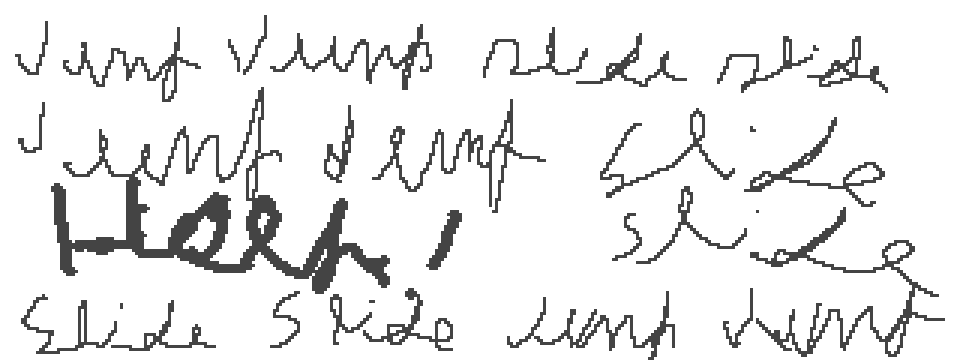 Jump Jump slide slide
Jump Jump slide
slide
Slide Slide jump jump